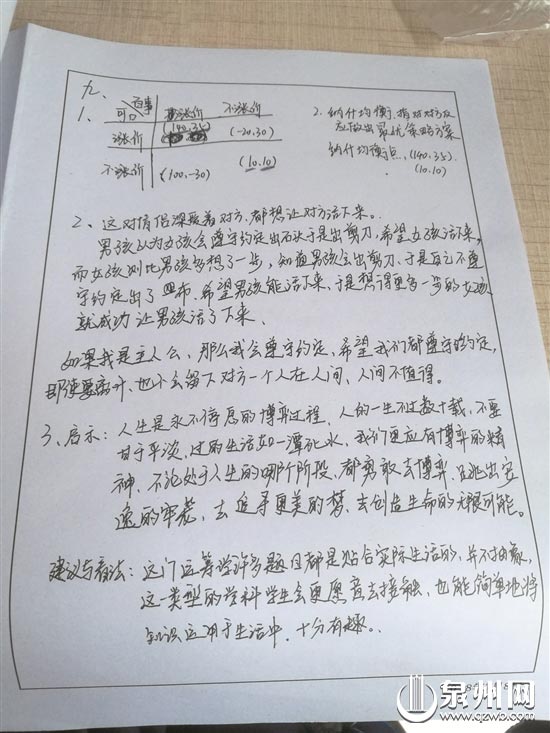 九、
1、 可口 百事 涨价 不涨价
涨价 (140,35) (-20,30)
不涨价 (100,-30) (10,10)
2. 纳什均衡:指对对方反
应做出最优策略方案
纳什均衡点:(140,35).
(10,10)
2、这对情侣深爱着对方,都想让对方活下来。
男孩认为女孩会遵守约定出石头于是出剪刀,希望女孩活下来,
而女孩则比男孩多想了一步,知道男孩会出剪刀,于是自己不遵
守约定出了布,希望男孩能活下来,于是想得更多一步的女孩
就成功让男孩活了下来、
如果我是主人公,那么我会遵守约定,希望我们都遵守约定,
即使要离开,也不会留下对方一个人在人间,人间不值得。
3、启示:人生是永不停息的博弈过程,人的一生不过数十载,不要
甘于平淡,过的生活如一潭死水,我们更应有博弈的精
神,不论处于人生的哪个阶段,都勇敢去博弈,且跳出安
逸的牢笼,去追寻更美的梦,去创造生命的无限可能。
建议与看法:这门运筹学许多题目都是贴合实际生活的,并不抽象,
这一类型的学科学生会更愿意去接触,也能简单地将
知识运用于生活中,十分有趣。
泉州网
www.qzwb.com